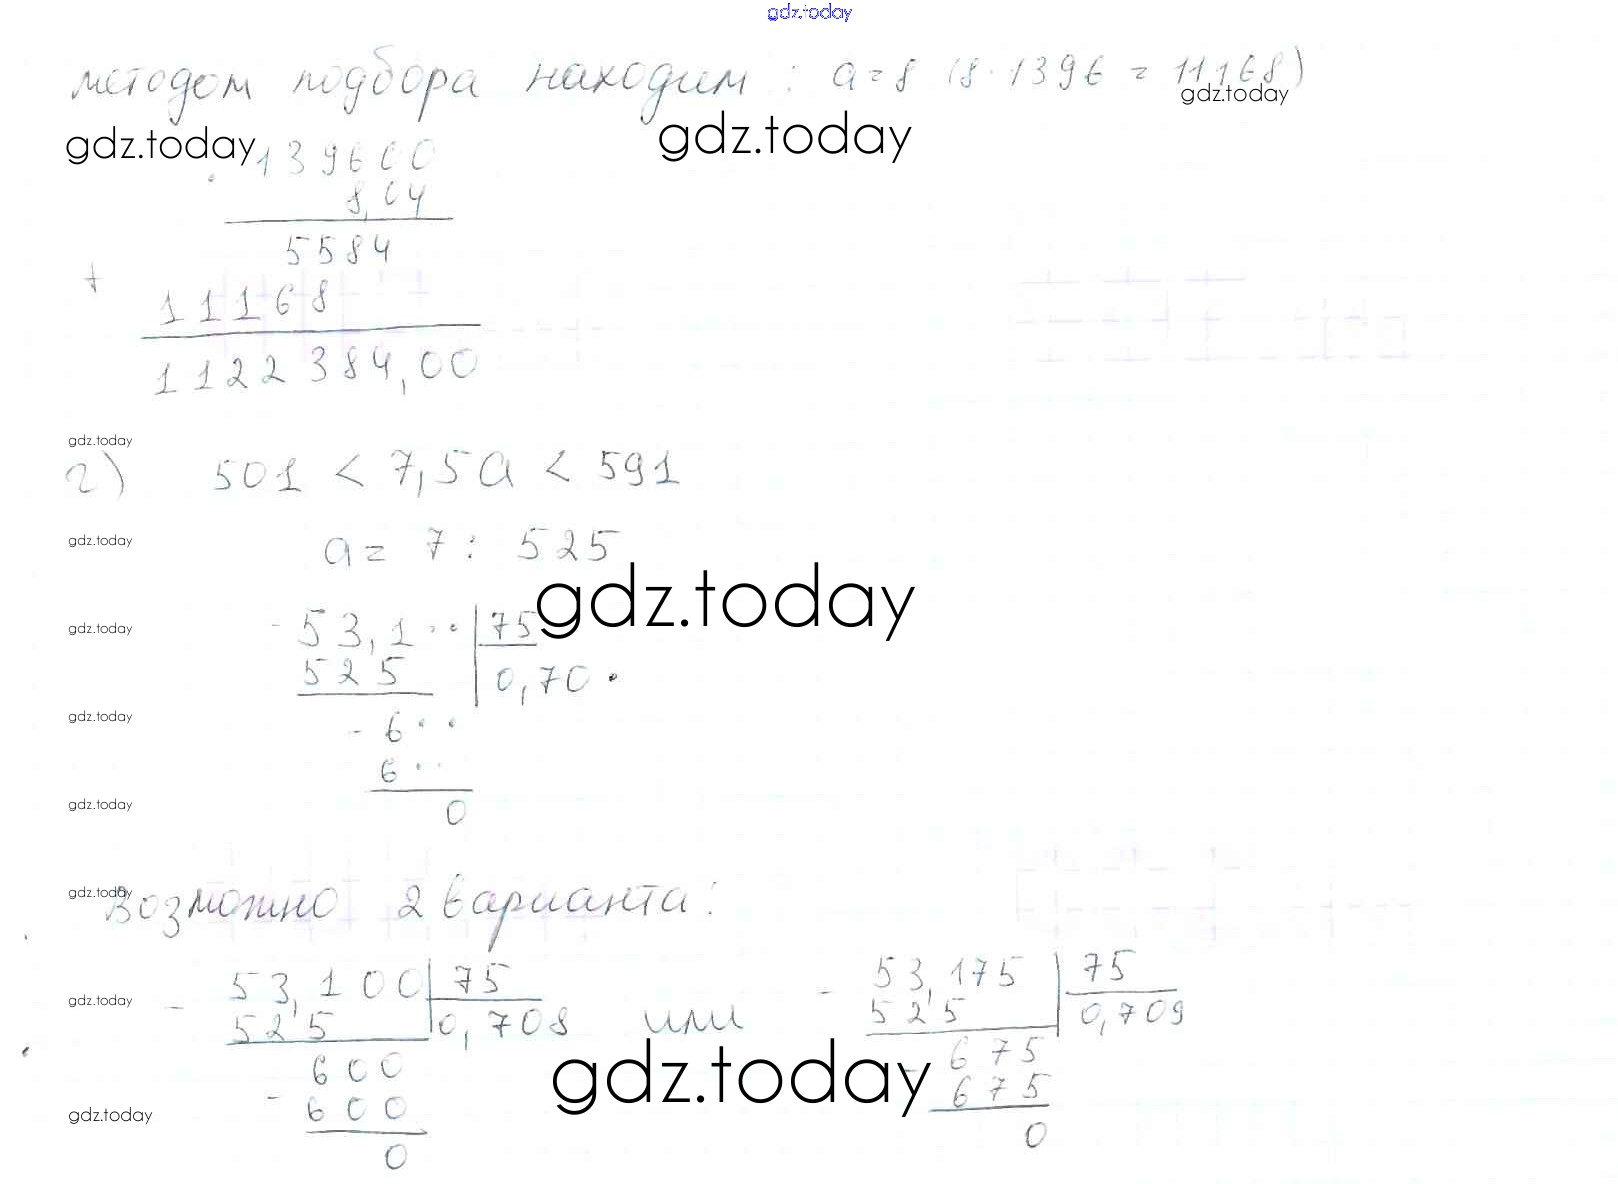 gdz.today
методом подбора находим : a = 8 (8 · 1396 = 11168)
gdz.today
gdz.today gdz.today
· 139600
8,04
5584
+
11168
1122384,00
gdz.today
г) 501 < 7,5a < 591
gdz.today a = 7 : 525
gdz.today
gdz.today - 53,1·· | 75
525 | 0,70·
gdz.today - 6··
6··
gdz.today 0
gdz.today Возможно 2 варианта:
- 53,100 | 75 - 53,175 | 75
gdz.today 525 | 0,708 или 525 | 0,709
600 - 675
gdz.today
- 600 675
gdz.today 0
0